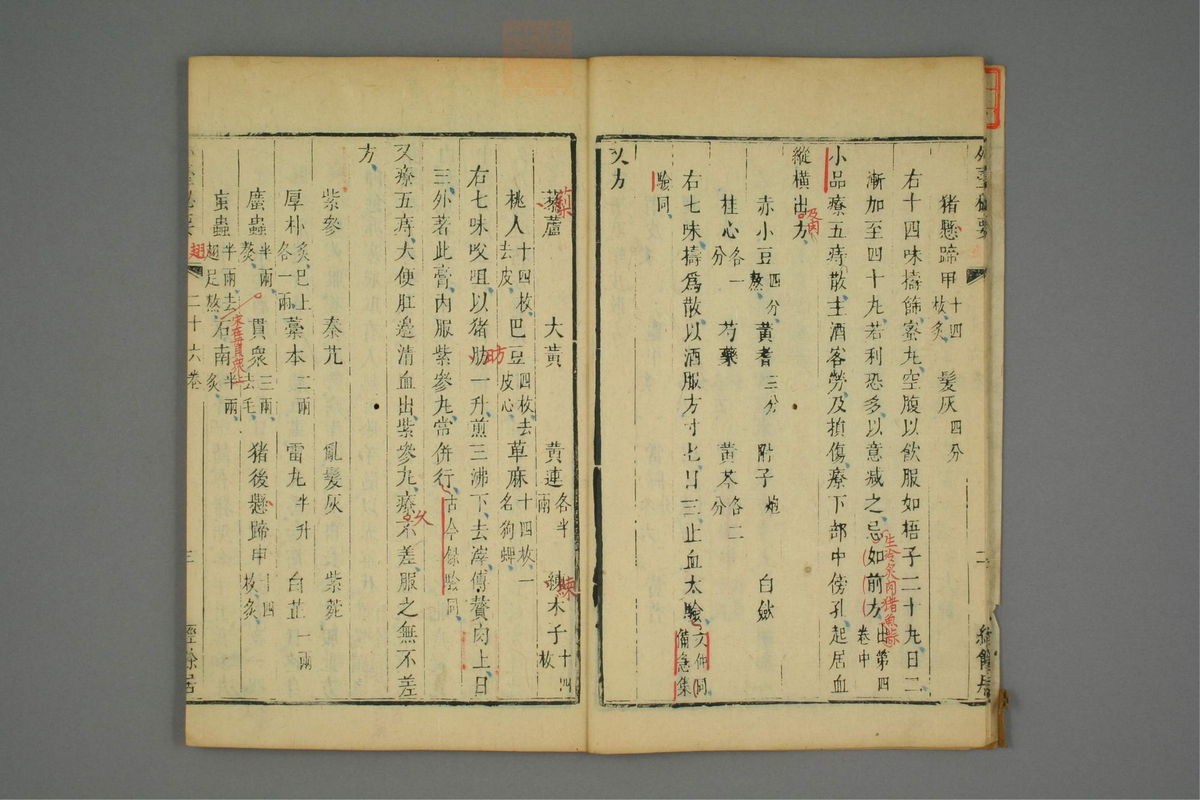 猪懸蹄甲十四枚炙 髮灰四分
右十四味擣篩蜜丸空腹以飲服如梧子二十丸日二
漸加至四十丸若利恐多以意减之忌如前方出第四卷中
生冷炙肉猪魚蒜
小品療五痔散主酒客勞及損傷療下部中傍孔起居血
縱橫出方
及肉
赤小豆四分熬 黃耆三分 附子炮 白蘞
桂心各一分 芍藥 黃芩各二分
右七味擣爲散以酒服方寸匕日三止血太驗文仲同備急集
驗同
又方
藜蘆 大黃 黃連各半兩 練木子十四枚
桃人十四枚去皮 巴豆四枚去皮心 萆麻十四枚一名狗蜱
右七味㕮咀以猪肪一升煎三沸下去滓傅贅肉上日
三外著此膏內服紫參丸常併行古今錄驗同
又療五痔大便肛邊清血出紫參丸療不差服之無不差
方
紫參 秦艽 亂髮灰 紫菀
厚朴炙已上各一兩 藁本二兩 雷丸半升 白芷一兩
䗪蟲半兩熬 貫衆三兩去毛 猪後懸蹄甲十四枚炙
虻蟲半兩去翅足熬 石南半兩炙
二十六卷
三 經餘居